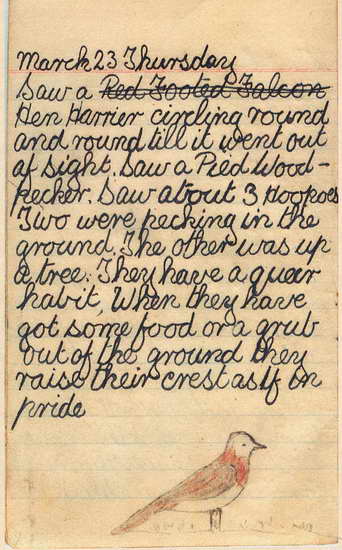 March 23 Thursday
Saw a Red Footed Falcon
Hen Harrier circling round
and round till it went out
of sight. Saw a Pied Wood-
pecker. Saw about 3 Hoopoes
Two were pecking in the
ground. The other was up
a tree. They have a quear
habit, When they have
got some food or a grub
out of the ground they
raise their crest as if in
pride